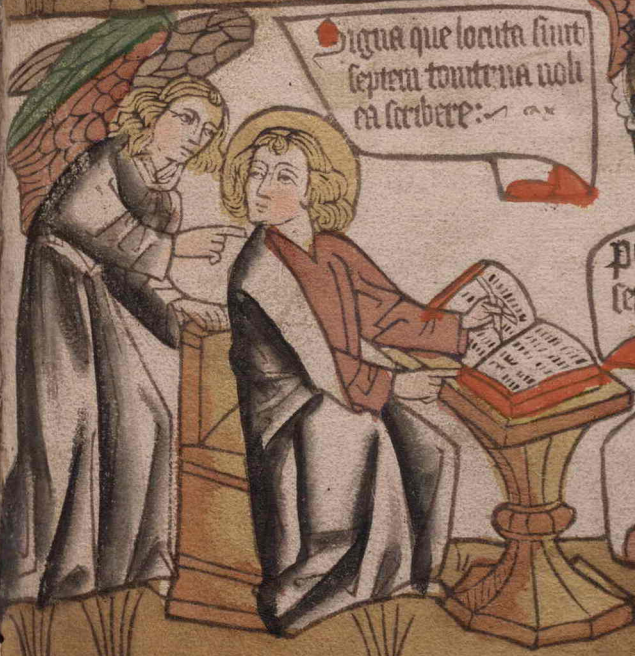 Signa que locuta sunt
septem tonitrua noli
ea scribere: